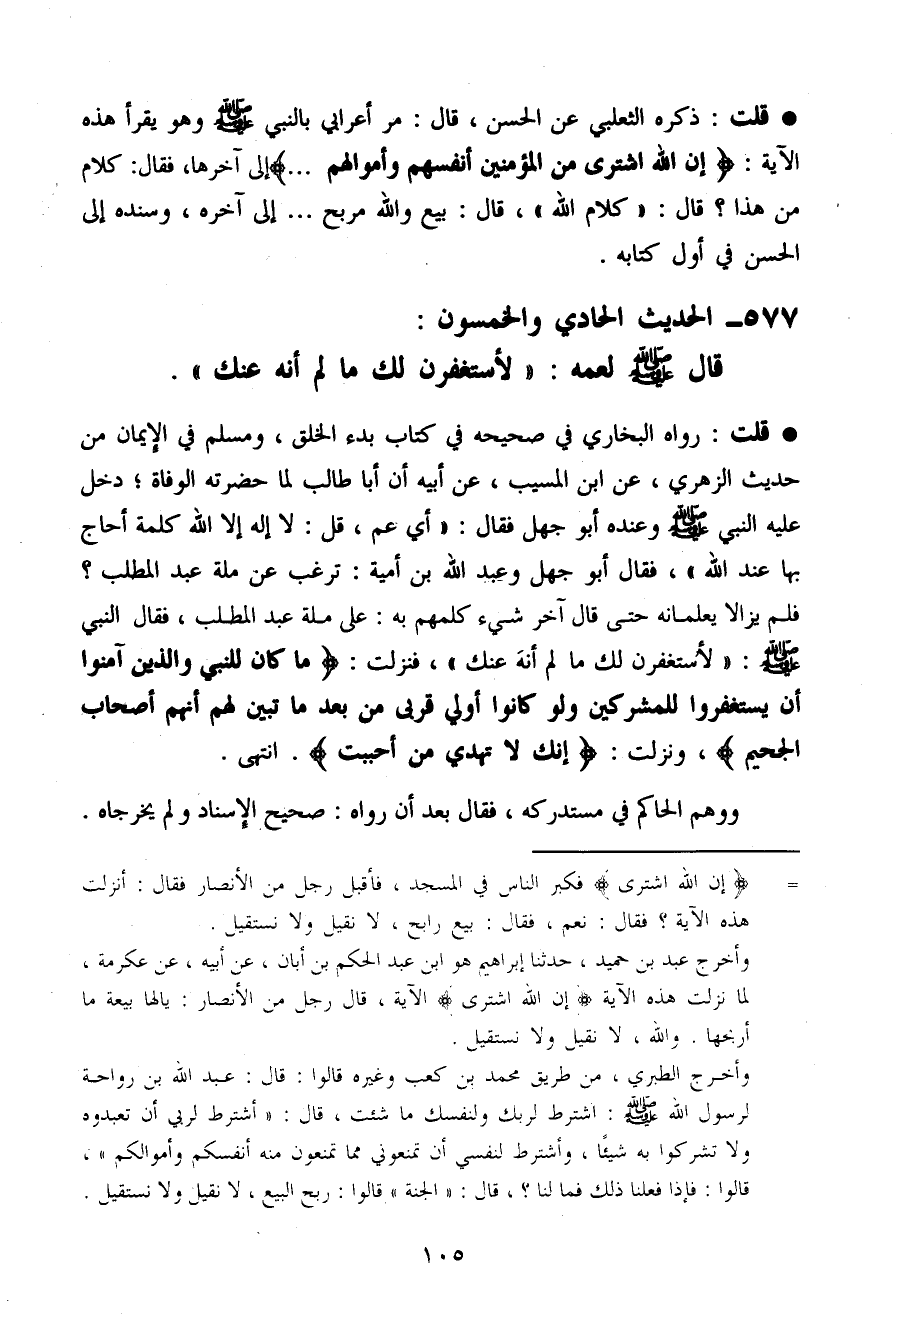 ● قلت : ذكره الثعلبي عن الحسن ، قال : مر أعرابي بالنبي ﷺ وهو يقرأ هذه
الآية : ﴿ إن الله اشترى من المؤمنين أنفسهم وأموالهم ...﴾إلى آخرها، فقال: كلام
من هذا ؟ قال : « كلام الله » ، قال : بيع والله مربح ... إلى آخره ، وسنده إلى
الحسن في أول كتابه .
٥٧٧ـ الحديث الحادي والخمسون :
قال ﷺ لعمه : « لأستغفرن لك ما لم أنه عنك » .
● قلت : رواه البخاري في صحيحه في كتاب بدء الخلق ، ومسلم في الإيمان من
حديث الزهري ، عن ابن المسيب ، عن أبيه أن أبا طالب لما حضرته الوفاة ؛ دخل
عليه النبي ﷺ وعنده أبو جهل فقال : « أي عم ، قل : لا إله إلا الله كلمة أحاج
بها عند الله » ، فقال أبو جهل وعبد الله بن أمية : ترغب عن ملة عبد المطلب ؟
فلم يزالا يعلمانه حتى قال آخر شيء كلمهم به : على ملة عبد المطلب ، فقال النبي
ﷺ : « لأستغفرن لك ما لم أنهَ عنك » ، فنزلت : ﴿ ما كان للنبي والذين آمنوا
أن يستغفروا للمشركين ولو كانوا أولي قربى من بعد ما تبين لهم أنهم أصحاب
الجحيم ﴾ ، ونزلت : ﴿ إنك لا تهدي من أحببت ﴾ . انتهى .
ووهم الحاكم في مستدركه ، فقال بعد أن رواه : صحيح الإسناد ولم يخرجاه .
= ﴿ إن الله اشترى ﴾ فكبر الناس في المسجد ، فأقبل رجل من الأنصار فقال : أنزلت
هذه الآية ؟ فقال : نعم ، فقال : بيع رابح ، لا نقيل ولا نستقيل .
وأخرج عبد بن حميد ، حدثنا إبراهيم هو ابن عبد الحكم بن أبان ، عن أبيه ، عن عكرمة ،
لما نزلت هذه الآية ﴿ إن الله اشترى ﴾ الآية ، قال رجل من الأنصار : يالها بيعة ما
أربحها . والله ، لا نقيل ولا نستقيل .
وأخرج الطبري ، من طريق محمد بن كعب وغيره قالوا : قال : عبد الله بن رواحة
لرسول الله ﷺ : اشترط لربك ولنفسك ما شئت ، قال : « أشترط لربي أن تعبدوه
ولا تشركوا به شيئًا ، وأشترط لنفسي أن تمنعوني مما تمنعون منه أنفسكم وأموالكم » ،
قالوا : فإذا فعلنا ذلك فما لنا ؟ ، قال : « الجنة » قالوا : ربح البيع ، لا نقيل ولا نستقيل .
١٠٥